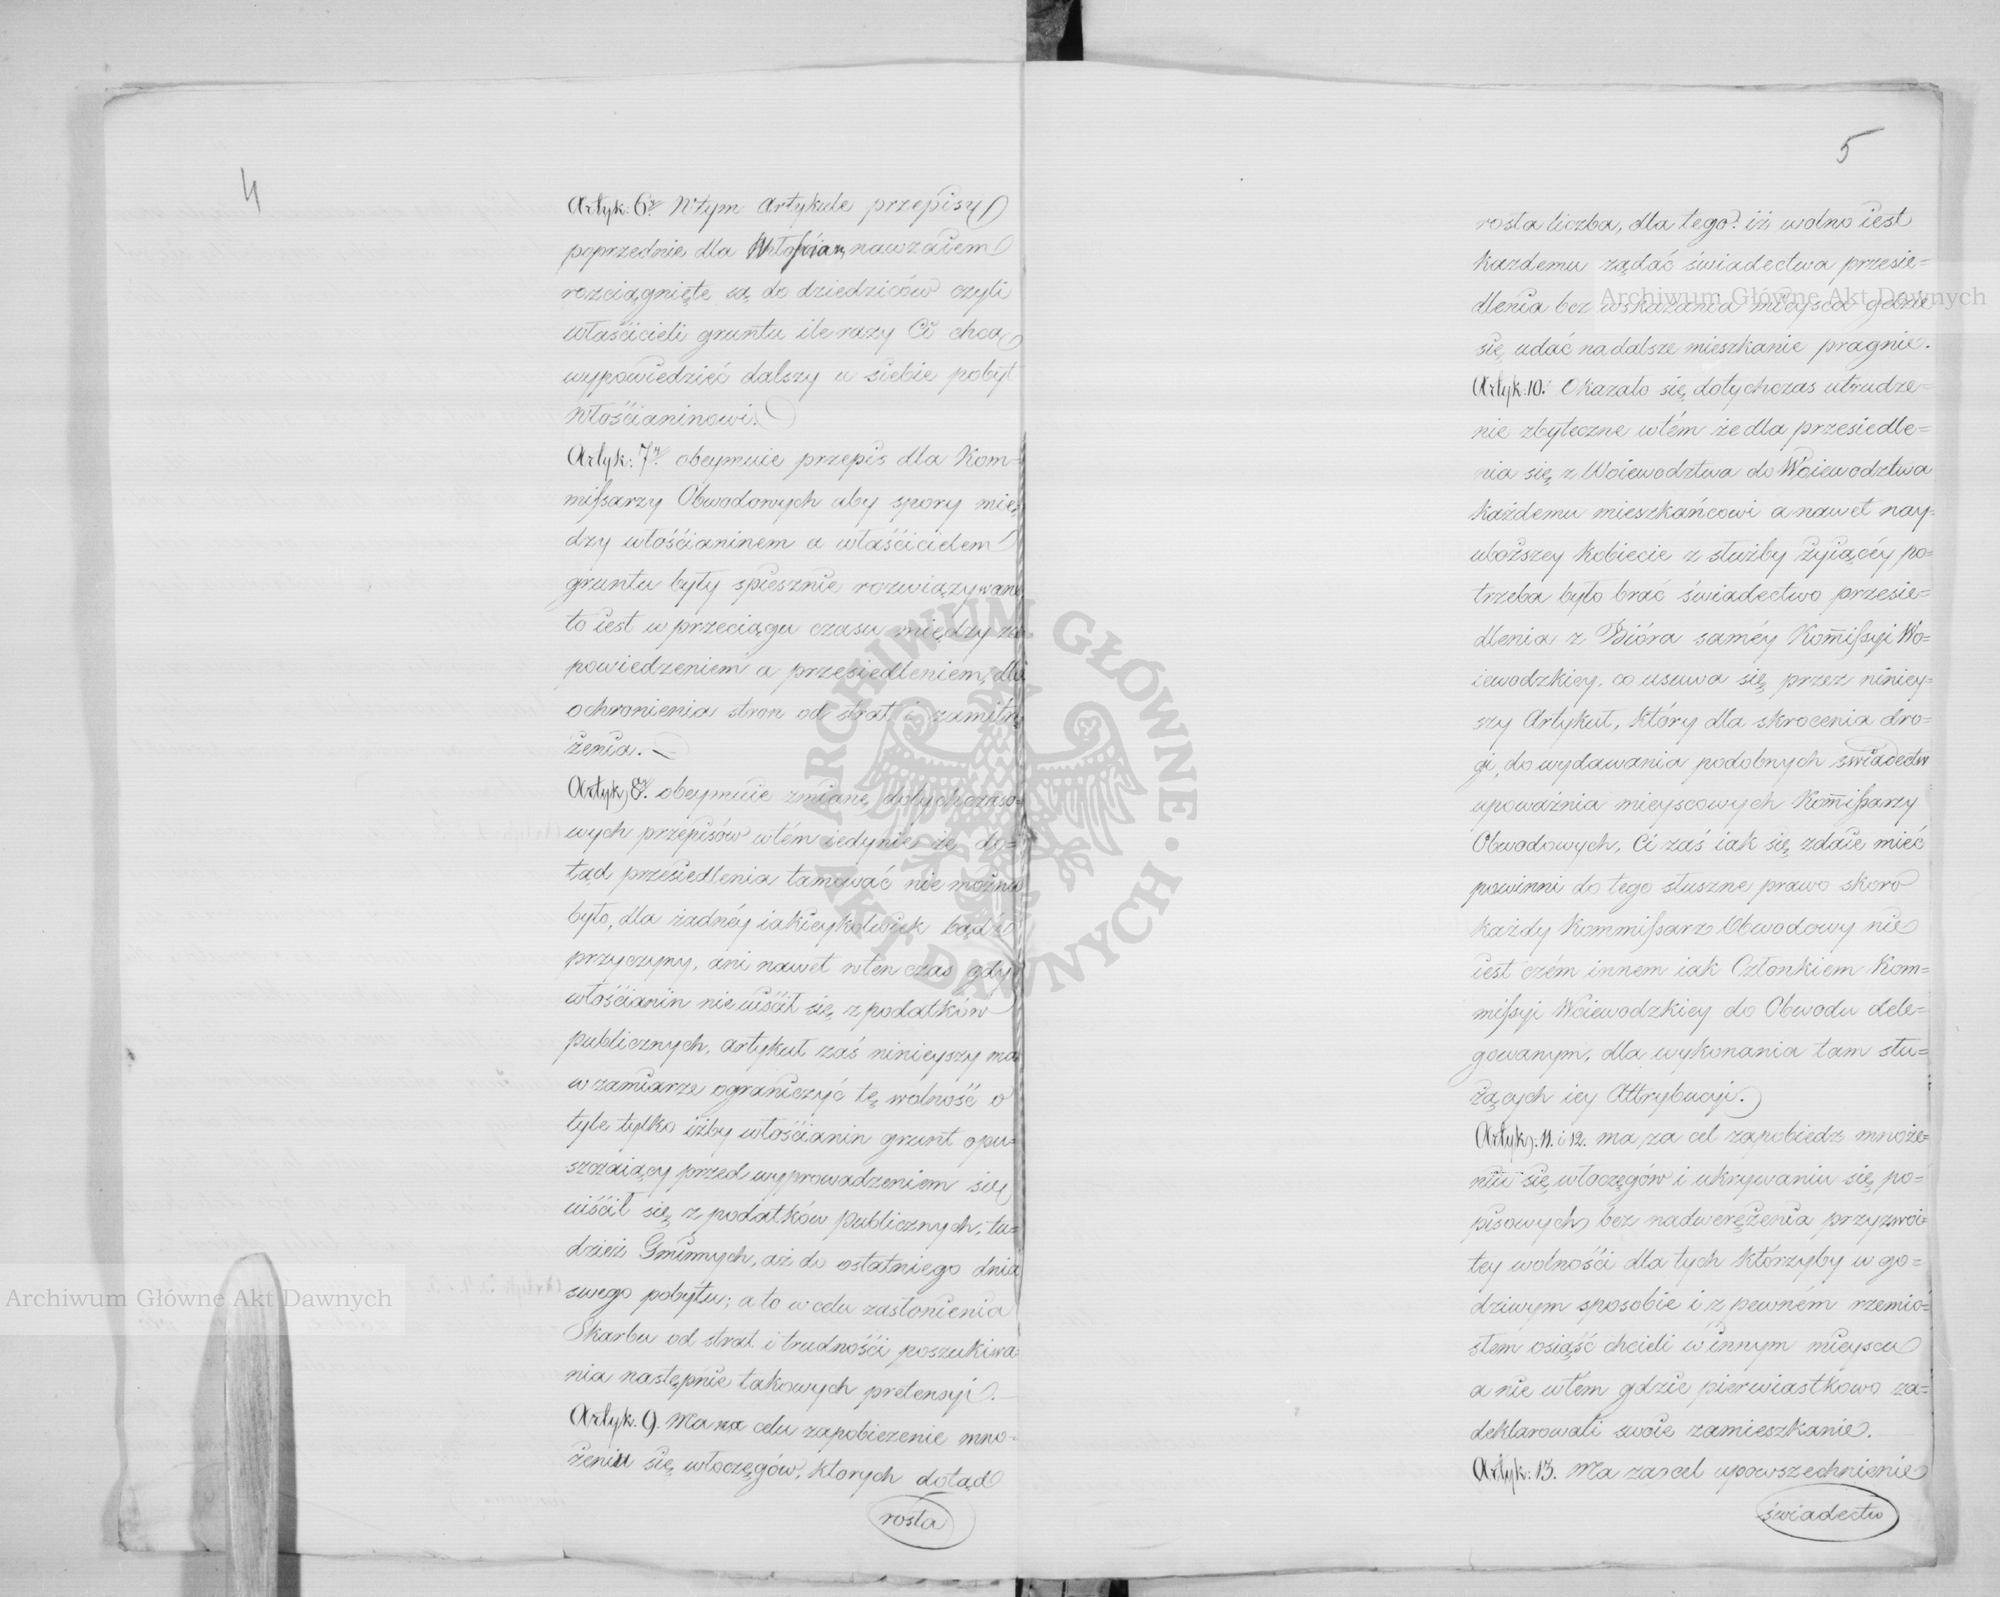 4
Artyk: 6y W tym Artykule przepisy
poprzednie dla Włościan, nawzaiem
rozciągnięte są do dziedziców czyli
właścicieli gruntu ile razy Ci chcą
wypowiedzieć dalszy u siebie pobyt
Włościaninowi.
Artyk: 7y obeymuie przepis dla Kom=
missarzy Obwodowych aby spory mię=
dzy włościaninem a właścicielem
gruntu były spiesznie rozwiązywane
to iest w przeciągu czasu między za
powiedzeniem a przesiedleniem, dla
ochronienia stron od strat i zamitrę
żenia. —
Artyk: 8y. obeymuie zmianę dotychczaso=
wych przepisów w tém iedynie że do=
tąd przesiedlenia tamować nie można
było, dla żadnéy iakieykolwiek bądź
przyczyny, ani nawet w ten czas gdy
włościanin nie uiścił się z podatków
publicznych, artykuł zaś ninieyszy ma
w zamiarze ograniczyć tę wolność o
tyle tylko iżby włościanin grunt opu=
szczaiący przed wyprowadzeniem się
uiścił się z podatków publicznych, tu=
dzież Gminnych, aż do ostatniego dnia
swego pobytu; a to w celu zasłonienia
Skarbu od strat i trudności poszukiwa=
nia następnie takowych pretensyi. —
Artyk. 9. Ma na celu zapobieżenie mno=
żeniu się włoczęgów, ktorych dotąd
rosła
5
rosła liczba, dla tego iż wolno iest
każdemu żądać świadectwa przesie=
dlenia bez wskazania mieysca gdzie
się udać na dalsze mieszkanie pragnie.
Artyk: 10. Okazało się dotychczas utrudze=
nie zbyteczne w tém że dla przesiedle=
nia się z Woiewodztwa do Woiewodztwa
każdemu mieszkańcowi a nawet nay=
uboższey kobiecie z służby żyiącéy po=
trzeba było brać świadectwo przesie=
dlenia z Bióra saméy Kommissyi Wo=
iewodzkiey, co usuwa się przez niniey=
szy Artykuł, który dla skrocenia dro=
gi, do wydawania podobnych świadectw
upoważnia mieyscowych Kommissarzy
Obwodowych, Ci zaś iak się zdaie mieć
powinni do tego słuszne prawo skoro
każdy Kommissarz Obwodowy nie
iest czém innem iak Członkiem Kom=
missyi Woiewodzkiey do Obwodu dele=
gowanym, dla wykonania tam słu=
żących iey Attrybucyi.
Artyk: 11. i 12. ma za cel zapobiedz mnoże=
niu się włoczęgów i ukrywaniu się po=
pisowych, bez nadwerężenia przyzwoi=
tey wolności dla tych którzyby w go=
dziwym sposobie i z pewném rzemio=
słem osiąść chcieli w innym mieyscu
a nie w tem gdzie pierwiastkowo za=
deklarowali swoie zamieszkanie.
Artyk: 13. Ma za cel upowszechnienie
świadectw
Archiwum Główne Akt Dawnych
Archiwum Główne Akt Dawnych
ARCHIWUM GŁÓWNE · AKT DAWNYCH ·